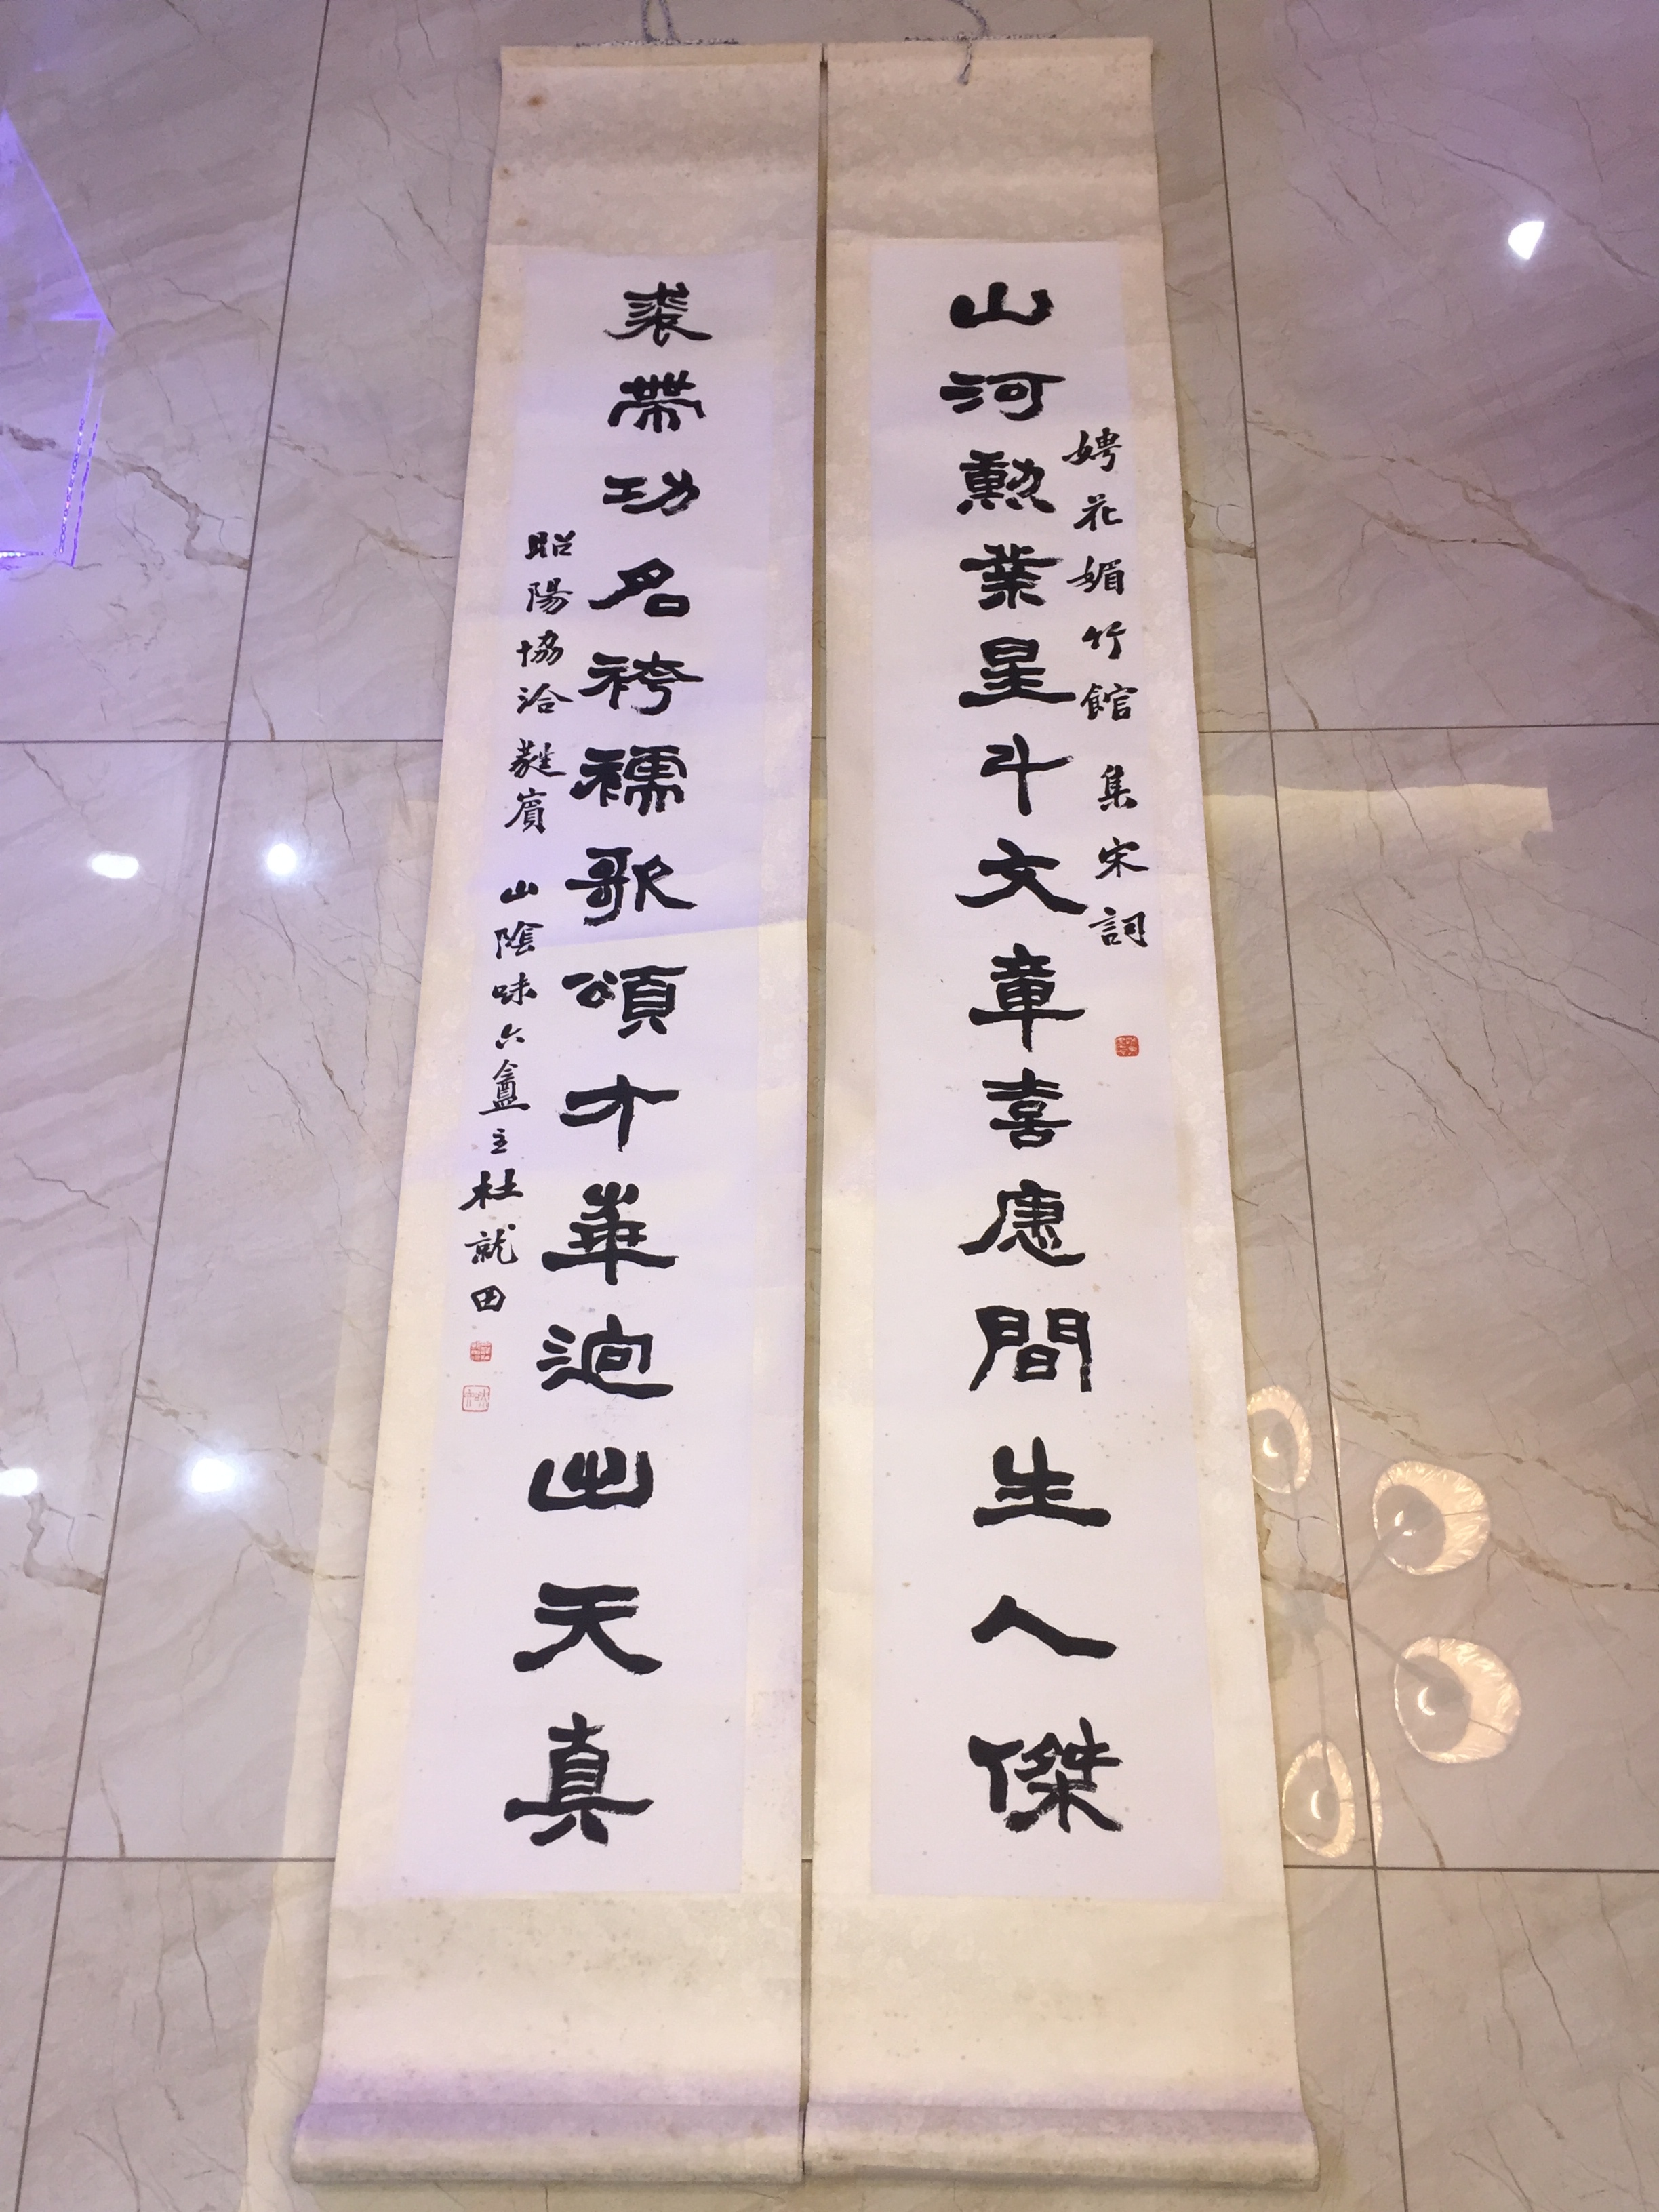 山河勳業星斗文章喜應間生人傑
娉花媚竹館 集宋詞
裘帶功名袴襦歌頌才華迥出天真
昭陽協洽蕤賓 山陰味六盫主杜就田